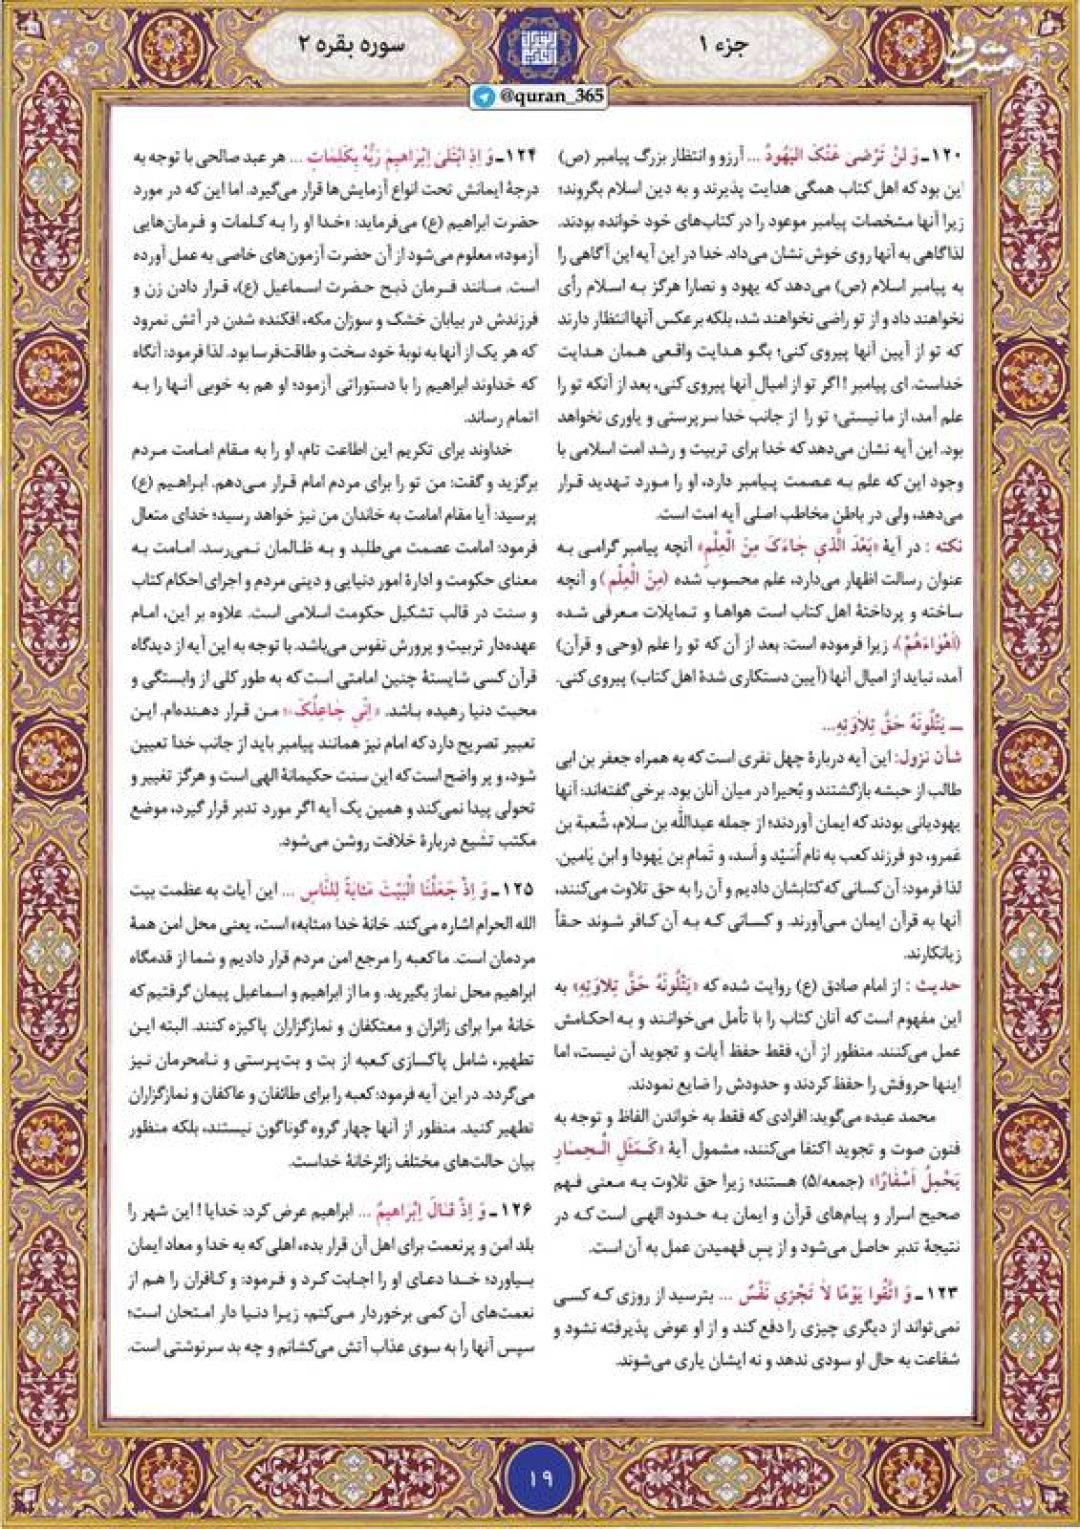 جزء ۱
سوره بقره ۲
@quran_365
مشرق
۱۲۰ـ وَ لَنْ تَرْضىٰ عَنْکَ الیَهُودُ ... آرزو و انتظار بزرگ پیامبر (ص)
این بود که اهل کتاب همگی هدایت پذیرند و به دین اسلام بگروند؛
زیرا آنها مشخصات پیامبر موعود را در کتاب‌های خود خوانده بودند.
لذا گاهی به آنها روی خوش نشان می‌داد. خدا در این آیه این آگاهی را
به پیامبر اسلام (ص) می‌دهد که یهود و نصارا هرگز به اسلام رأی
نخواهند داد و از تو راضی نخواهند شد، بلکه برعکس آنها انتظار دارند
که تو از آیین آنها پیروی کنی؛ بگو هدایت واقعی همان هدایت
خداست. ای پیامبر ! اگر تو از امیال آنها پیروی کنی، بعد از آنکه تو را
علم آمد، از ما نیستی؛ تو را از جانب خدا سرپرستی و یاوری نخواهد
بود. این آیه نشان می‌دهد که خدا برای تربیت و رشد امت اسلامی با
وجود این که علم به عصمت پیامبر دارد، او را مورد تهدید قرار
می‌دهد، ولی در باطن مخاطب اصلی آیه امت است.
نکته : در آیهٔ «بَعْدَ الَّذي جٰاءَکَ مِنَ الْعِلْمِ» آنچه پیامبر گرامی به
عنوان رسالت اظهار می‌دارد، علم محسوب شده (مِنَ الْعِلْم) و آنچه
ساخته و پرداختهٔ اهل کتاب است هواها و تمایلات معرفی شده
(اَهْوٰاءَهُمْ)، زیرا فرموده است: بعد از آن که تو را علم (وحی و قرآن)
آمد، نباید از امیال آنها (آیین دستکاری شدهٔ اهل کتاب) پیروی کنی.
ـــ یَتْلُونَهُ حَقَّ تِلاٰوَتِهِ...
شأن نزول: این آیه دربارهٔ چهل نفری است که به همراه جعفر بن ابی
طالب از حبشه بازگشتند و بُحیرا در میان آنان بود. برخی گفته‌اند: آنها
یهودیانی بودند که ایمان آوردند؛ از جمله عبدالله بن سلام، شُعبة بن
عَمرو، دو فرزند کعب به نام اُسَیْد و اَسد، و تَمام بن یَهودا و ابن یَامین.
لذا فرمود: آن کسانی که کتابشان دادیم و آن را به حق تلاوت می‌کنند،
آنها به قرآن ایمان می‌آورند. و کسانی که به آن کافر شوند حقاً
زیانکارند.
حدیث : از امام صادق (ع) روایت شده که «یَتْلُونَهُ حَقَّ تِلاوَتِهِ» به
این مفهوم است که آنان کتاب را با تأمل می‌خوانند و به احکامش
عمل می‌کنند. منظور از آن، فقط حفظ آیات و تجوید آن نیست، اما
اینها حروفش را حفظ کردند و حدودش را ضایع نمودند.
محمد عبده می‌گوید: افرادی که فقط به خواندن الفاظ و توجه به
فنون صوت و تجوید اکتفا می‌کنند، مشمول آیهٔ «کَمَثَلِ الْحِمٰارِ
یَحْمِلُ اَسْفٰارًا» (جمعه/۵) هستند؛ زیرا حق تلاوت به معنی فهم
صحیح اسرار و پیام‌های قرآن و ایمان به حدود الهی است که در
نتیجهٔ تدبر حاصل می‌شود و از پسِ فهمیدن عمل به آن است.
۱۲۳ـ وَ اتَّقُوا یَوْمًا لاٰ تَجْزي نَفْسٌ ... بترسید از روزی که کسی
نمی‌تواند از دیگری چیزی را دفع کند و از او عوض پذیرفته نشود و
شفاعت به حال او سودی ندهد و نه ایشان یاری می‌شوند.
۱۲۴ـ وَ اِذِ ابْتَلیٰ اِبْرٰاهیمَ رَبُّهُ بِکَلِمٰاتٍ ... هر عبد صالحی با توجه به
درجهٔ ایمانش تحت انواع آزمایش‌ها قرار می‌گیرد. اما این که در مورد
حضرت ابراهیم (ع) می‌فرماید: «خدا او را به کلمات و فرمان‌هایی
آزمود»، معلوم می‌شود از آن حضرت آزمون‌های خاصی به عمل آورده
است. مانند فرمان ذبح حضرت اسماعیل (ع)، قرار دادن زن و
فرزندش در بیابان خشک و سوزان مکه، افکنده شدن در آتش نمرود
که هر یک از آنها به نوبهٔ خود سخت و طاقت‌فرسا بود. لذا فرمود: آنگاه
که خداوند ابراهیم را با دستوراتی آزمود؛ او هم به خوبی آنها را به
اتمام رساند.
خداوند برای تکریم این اطاعت تام، او را به مقام امامت مردم
برگزید و گفت: من تو را برای مردم امام قرار می‌دهم. ابراهیم (ع)
پرسید: آیا مقام امامت به خاندان من نیز خواهد رسید؛ خدای متعال
فرمود: امامت عصمت می‌طلبد و به ظالمان نمی‌رسد. امامت به
معنای حکومت و ادارهٔ امور دنیایی و دینی مردم و اجرای احکام کتاب
و سنت در قالب تشکیل حکومت اسلامی است. علاوه بر این، امام
عهده‌دار تربیت و پرورش نفوس می‌باشد. با توجه به این آیه از دیدگاه
قرآن کسی شایستهٔ چنین امامتی است که به طور کلی از وابستگی و
محبت دنیا رهیده باشد. «اِنّي جٰاعِلُکَ»؛ من قرار دهنده‌ام. این
تعبیر تصریح دارد که امام نیز همانند پیامبر باید از جانب خدا تعیین
شود، و پر واضح است که این سنت حکیمانهٔ الهی است و هرگز تغییر و
تحولی پیدا نمی‌کند و همین یک آیه اگر مورد تدبر قرار گیرد، موضع
مکتب تشیع دربارهٔ خلافت روشن می‌شود.
۱۲۵ـ وَ اِذْ جَعَلْنَا الْبَیْتَ مَثٰابَةً لِلنّٰاسِ ... این آیات به عظمت بیت
الله الحرام اشاره می‌کند. خانهٔ خدا «مثابه» است، یعنی محل امن همهٔ
مردمان است. ما کعبه را مرجع امن مردم قرار دادیم و شما از قدمگاه
ابراهیم محل نماز بگیرید. و ما از ابراهیم و اسماعیل پیمان گرفتیم که
خانهٔ مرا برای زائران و معتکفان و نمازگزاران پاکیزه کنند. البته این
تطهیر، شامل پاکسازی کعبه از بت و بت‌پرستی و نامحرمان نیز
می‌گردد. در این آیه فرمود: کعبه را برای طائفان و عاکفان و نمازگزاران
تطهیر کنید. منظور از آنها چهار گروه گوناگون نیستند، بلکه منظور
بیان حالت‌های مختلف زائر خانهٔ خداست.
۱۲۶ـ وَ اِذْ قٰالَ اِبْرٰاهیمُ ... ابراهیم عرض کرد: خدایا ! این شهر را
بلد امن و پرنعمت برای اهل آن قرار بده، اهلی که به خدا و معاد ایمان
بیاورد؛ خدا دعای او را اجابت کرد و فرمود: و کافران را هم از
نعمت‌های آن کمی برخوردار می‌کنم، زیرا دنیا دار امتحان است؛
سپس آنها را به سوی عذاب آتش می‌کشانم و چه بد سرنوشتی است.
۱۹